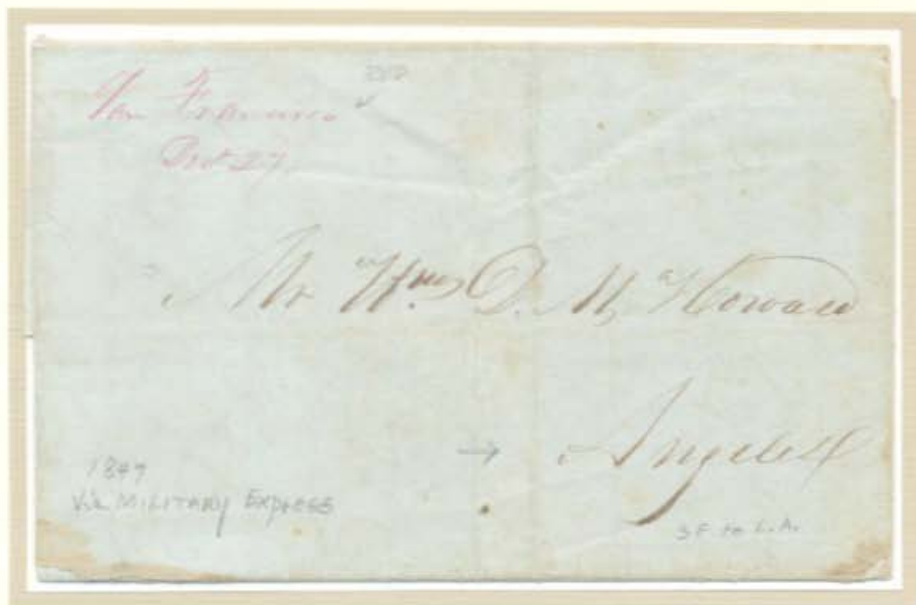 San Francisco
Oct 27.
Mr Wm D. M. Howard
→ Angeles
1847
Via MILITARY EXPRESS
SF to L.A.